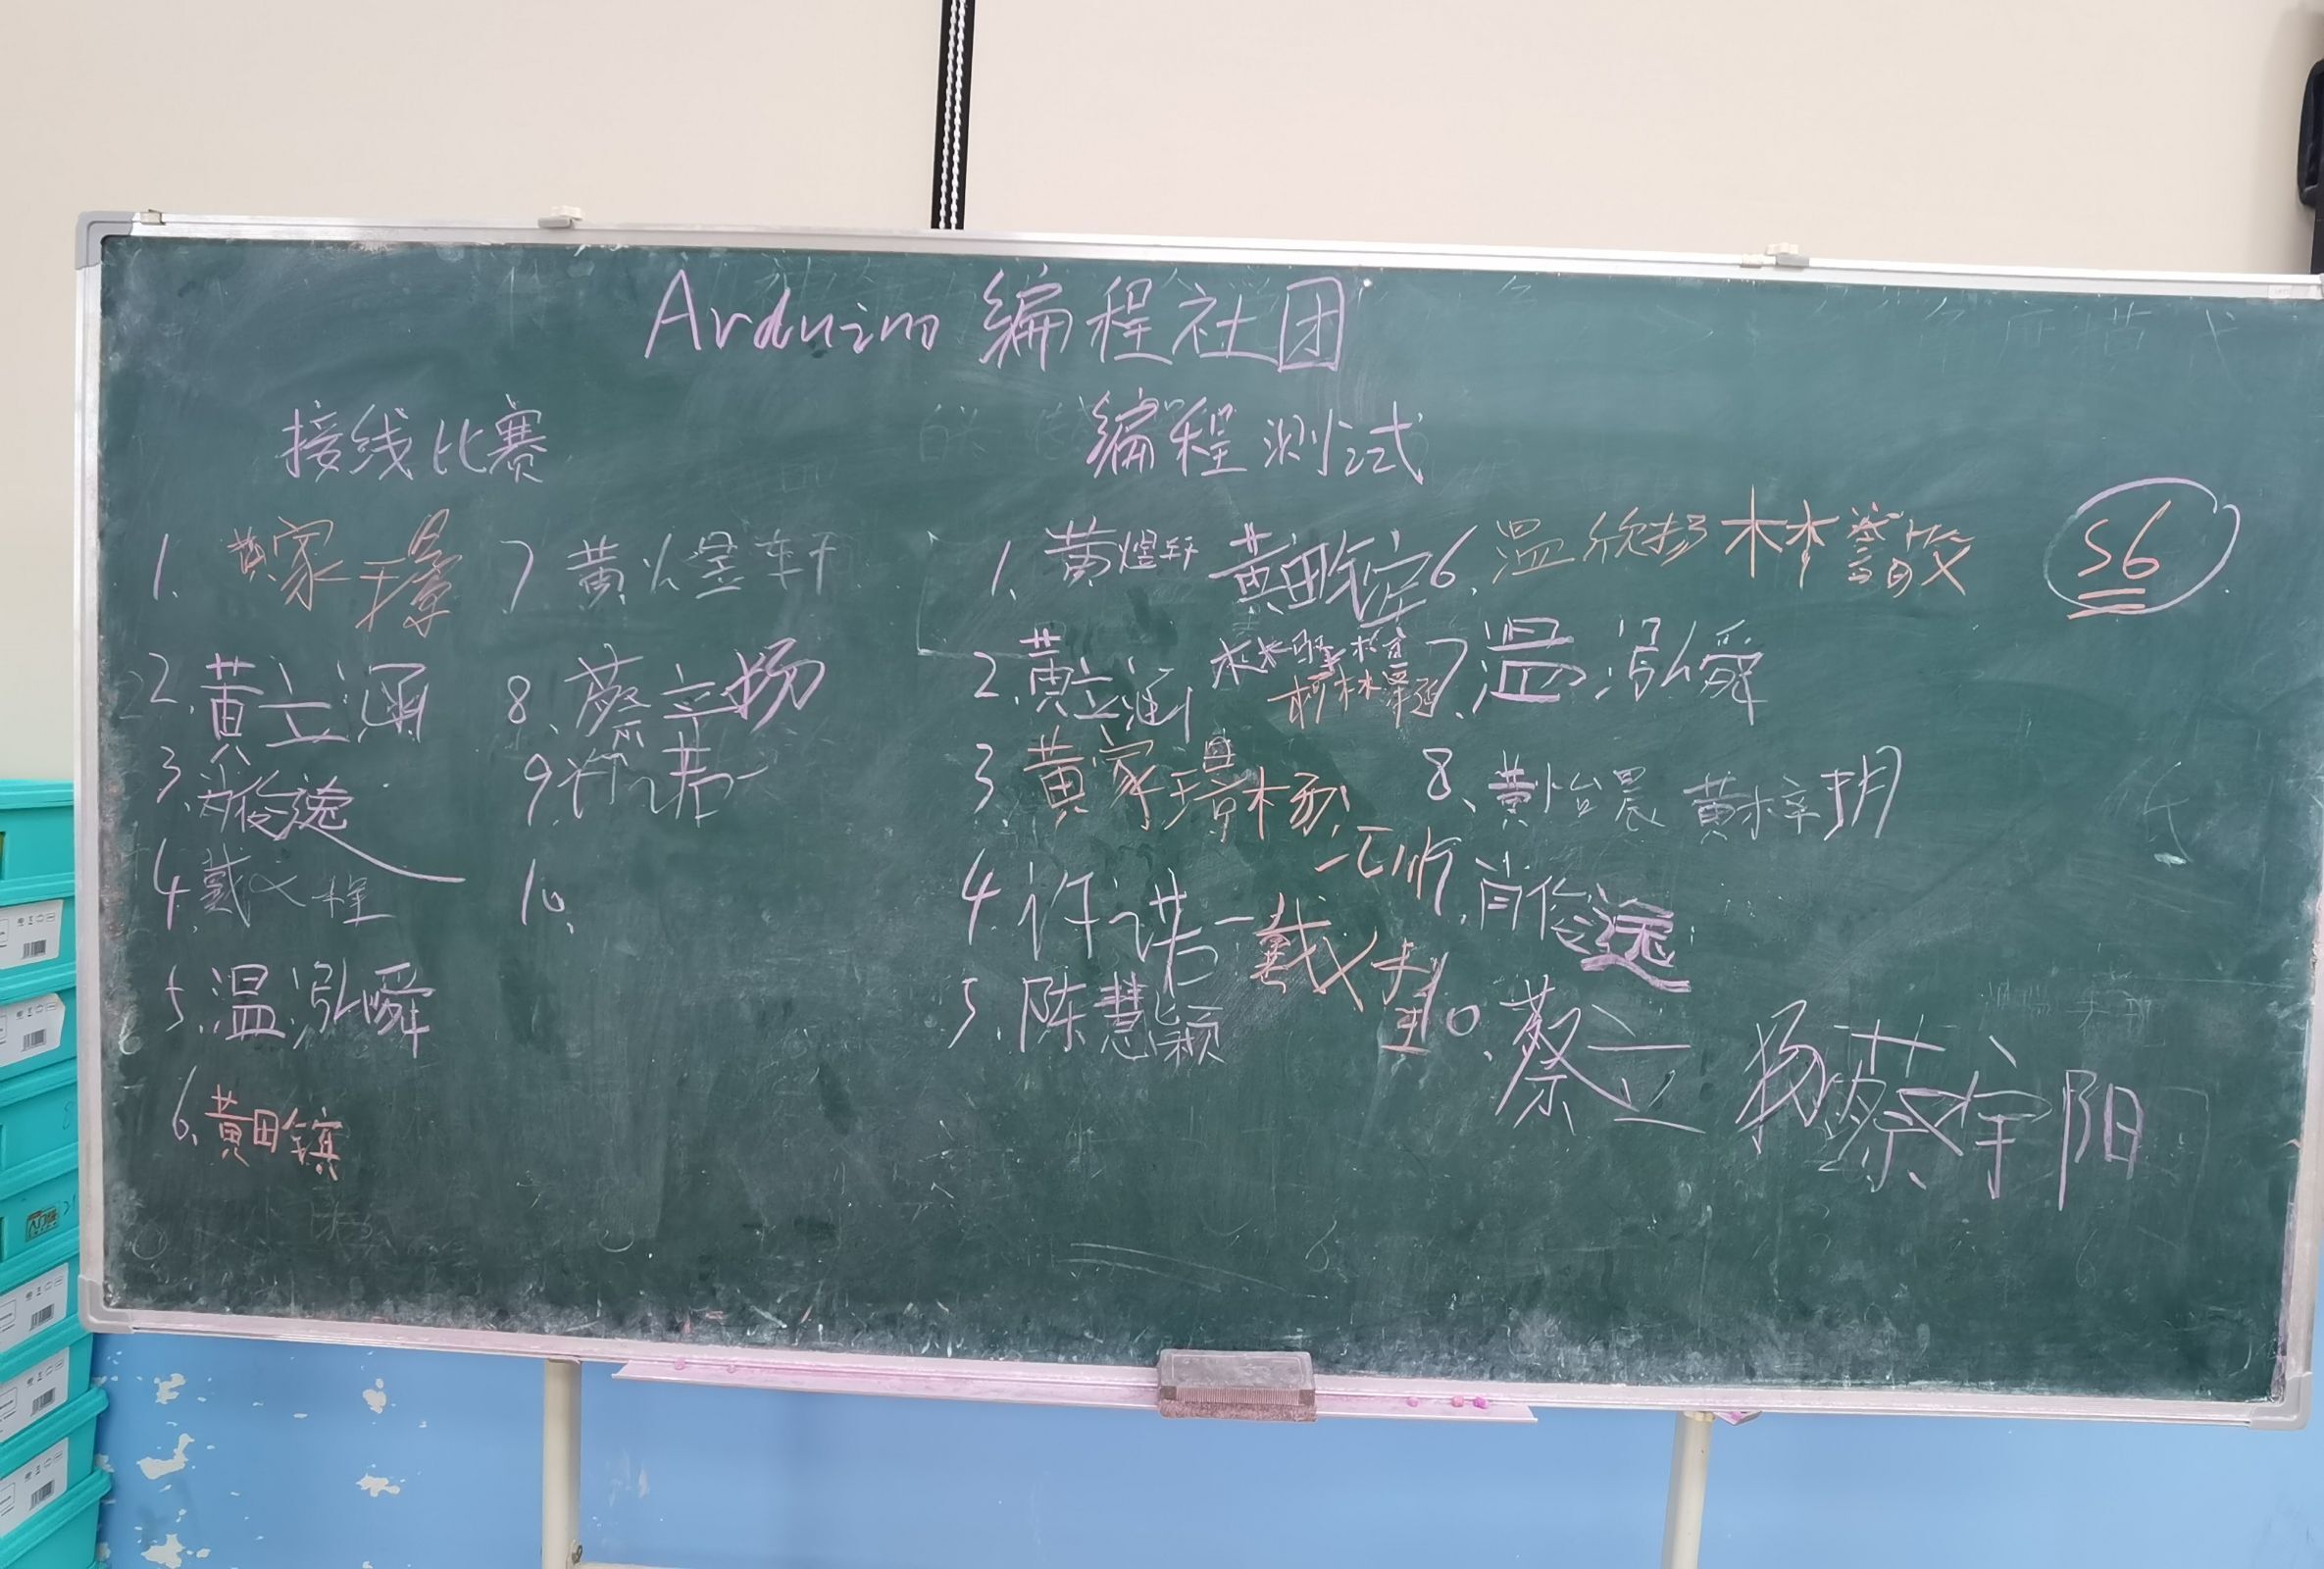 Arduino 编程社团
接线比赛
编程测试
1. 黄家璟
2. 黄立涵
3. 肖俊逸
4. 戴义程
5. 温泓舜
6. 黄田镇
7 黄煜轩
8. 蔡立扬
9. 许诺一
10.
1. 黄煜轩 黄田镇
2. 黄立涵
3 黄家璟
4. 许诺一 戴义程
5. 陈慧颖
6. 温欣扬 林
7. 温泓舜
8、黄怡晨 黄梓玥
肖俊逸
10、蔡立扬 蔡宇阳
56